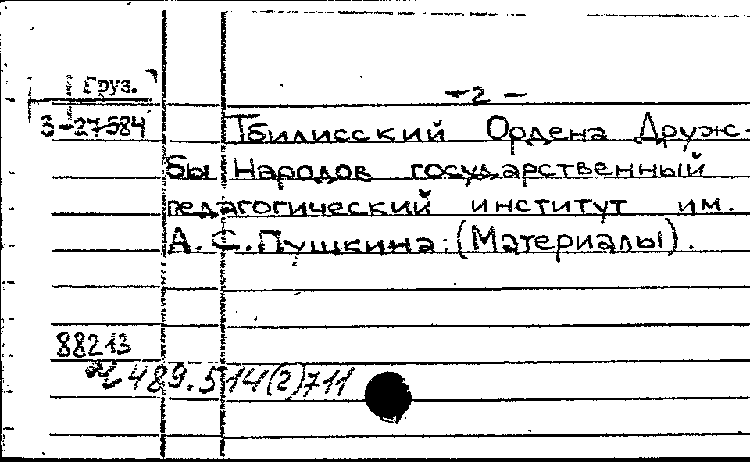 Груз.
- 2 -
3-27584
Тбилисский Ордена Друж-
бы Народов государственный
педагогический институт им.
А.С.Пушкина: (Материалы).
88213
489.514(2)711